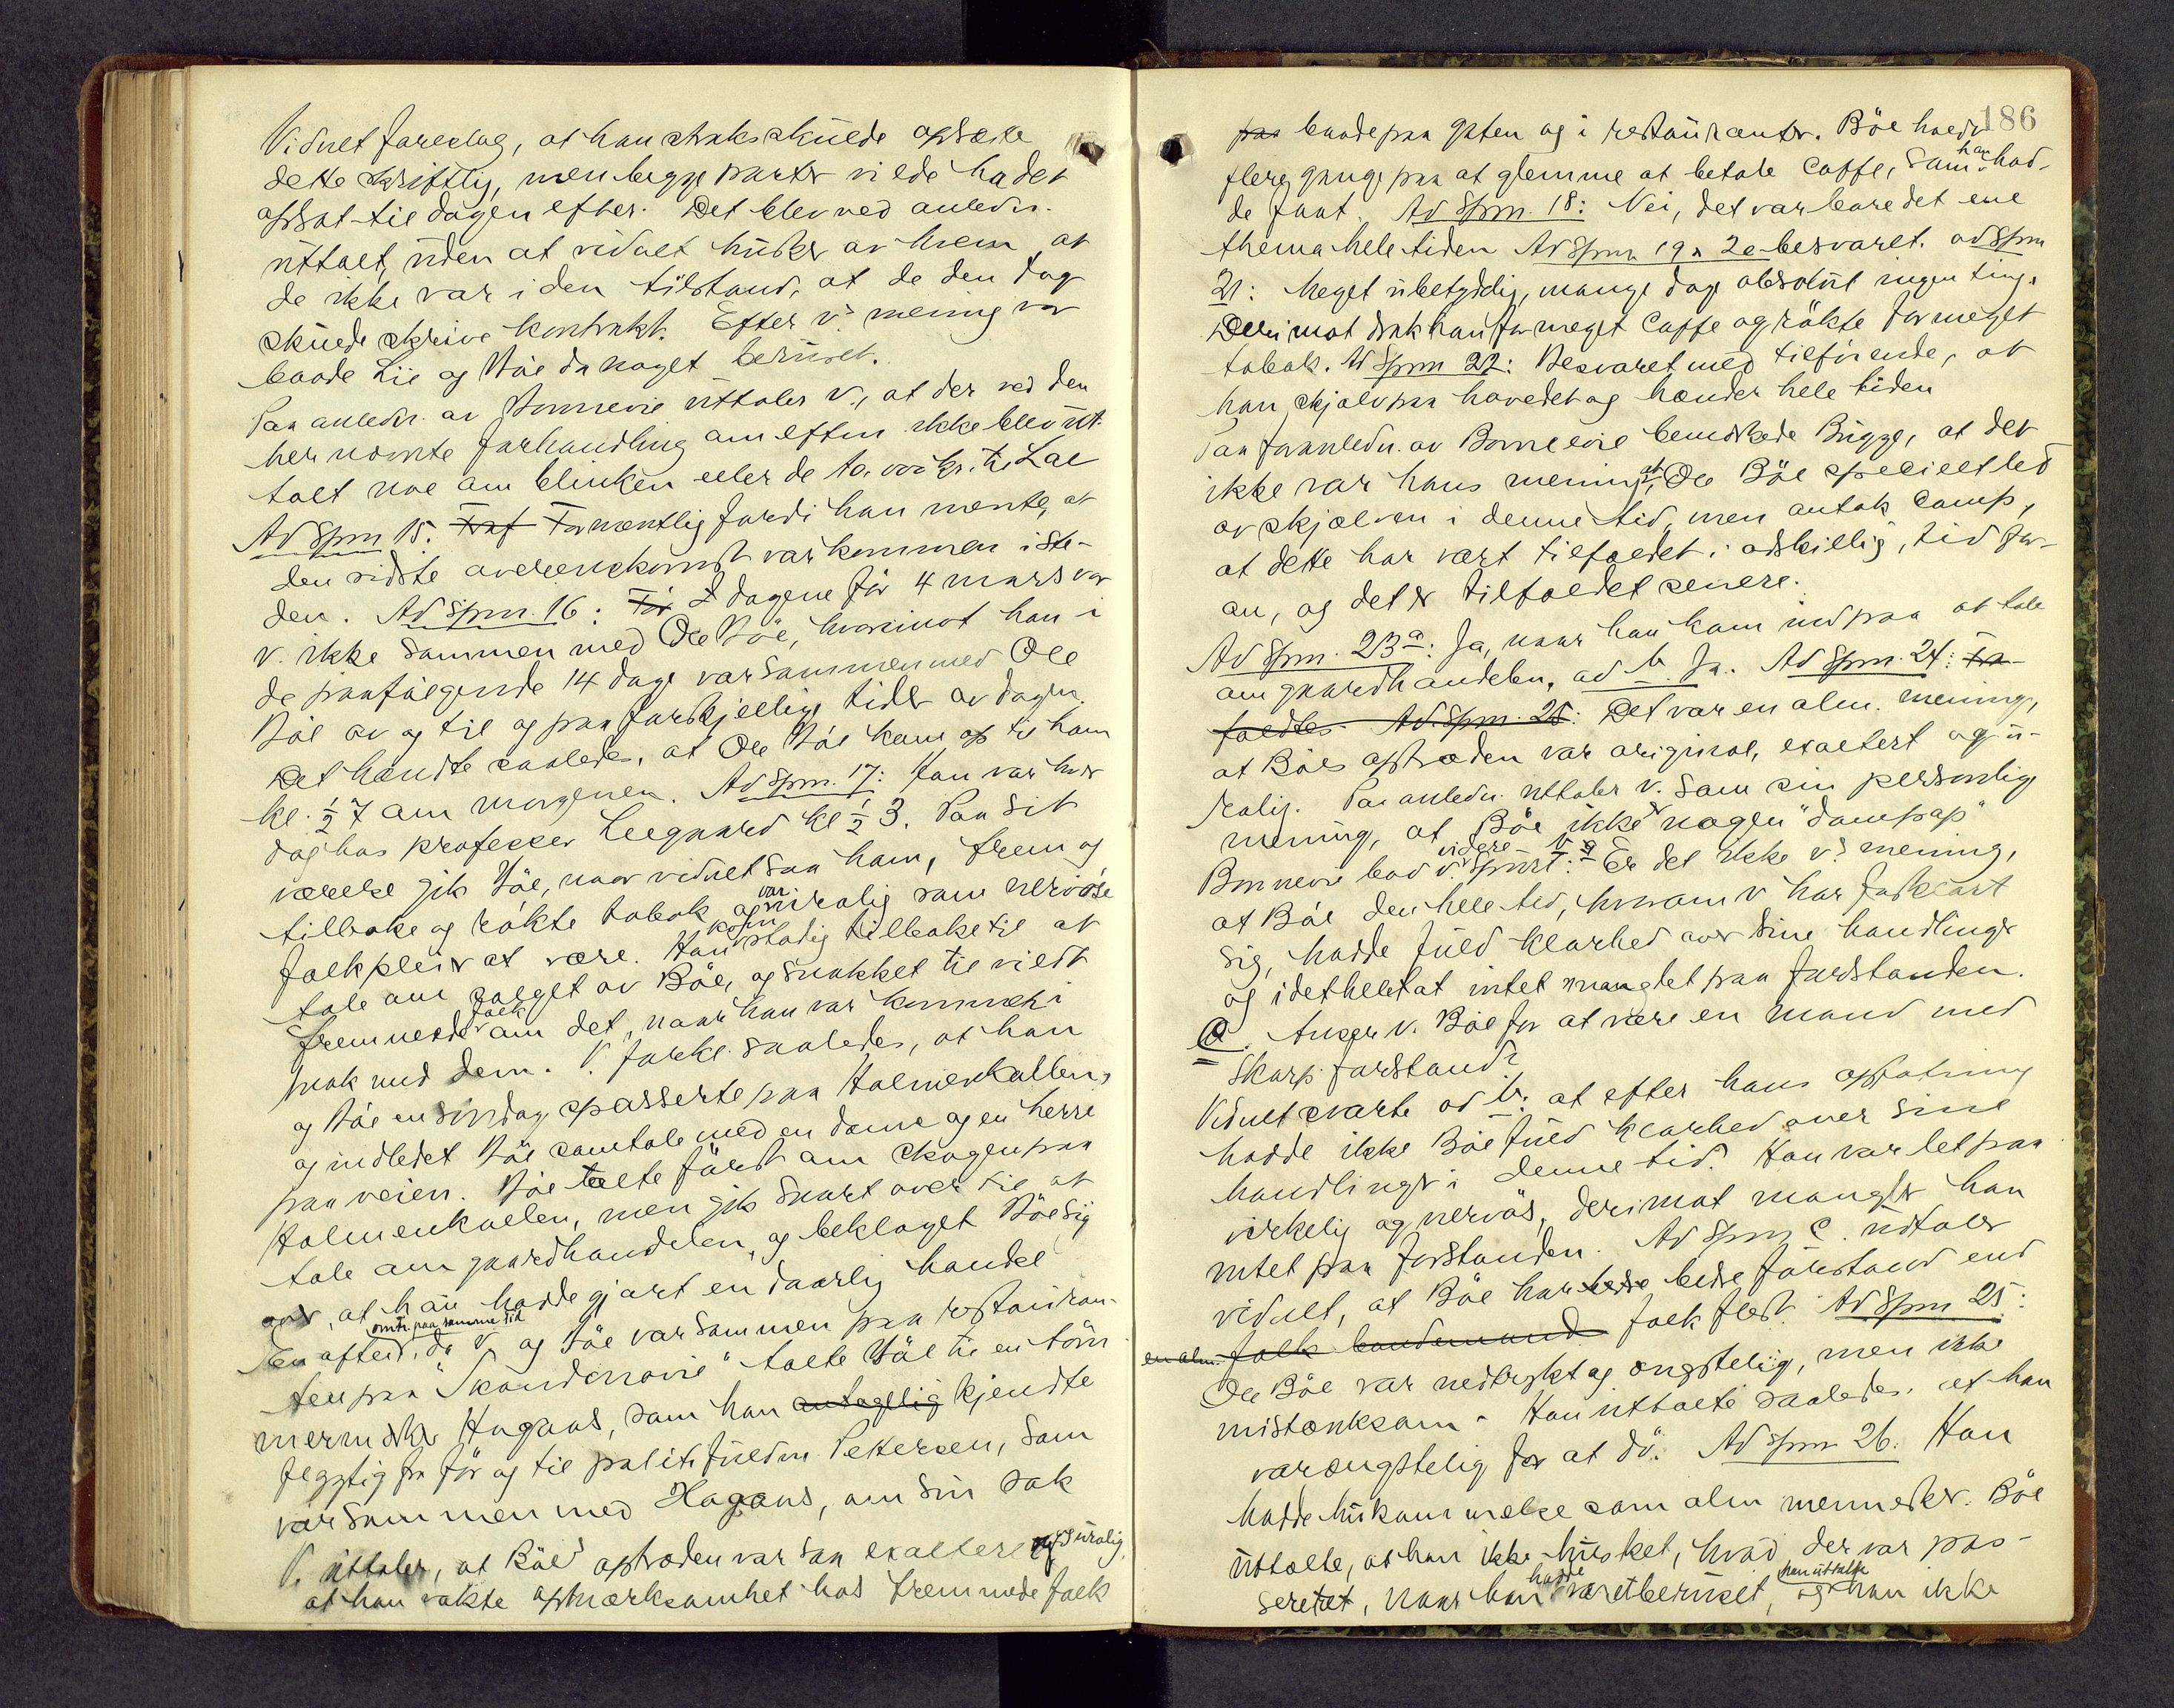 Vidnet foreslog, at han straks skulde opsætte
dette skriftlig, men begge parter vilde ha det
opsat til dagen efter. Det blev ved anledn.
uttalt, uden at vidnet husker av hvem, at
de ikke var i den tilstand, at de den dag
skulde skrive kontrakt. Efter v.s mening var
baade Lie og Böe da noget beruset.
Paa anledn. av Bonnevie uttaler v., at der ved den
her nævnte forhandling om eften ikke blev ut-
talt noe om blinken eller de
Ad Spm 15. Formentlig fordi han mente, at
den sidste overenskomst var kommen iste-
den. Ad Spm. 16: I dagene för 4 mars var
v. ikke sammen med Ole Böe, hvorimot han i
de paafölgende 14 dage var sammen med Ole
Böe av og til og paa forskjellige tider av dagen.
Det hændte saaledes, at Ole Böe kom op til ham
kl. ½ 7 om morgenen. Ad Spm. 17: Han var hver
dag hos professor Leegaard kl ½ 3. Paa sit
værelse gik Böe, naar vidnet saa ham, frem og
tilbake og rökte tobak og var urolig som nervöse
folk pleier at være. Han kom stadig tilbake til at
tale om salget av Böe, og snakket til vildt
fremmede folk om det, naar han var kommet i
snak med dem. V. forkl. saaledes, at han
og Böe en söndag spaserte paa Holmenkollen,
og indledet Böe samtale med en dame og en herre
paa veien. Böe talte först om skogen paa
Holmenkollen, men gik snart over til at
tale om gaardhandelen, og beklaget Böe sig
over, at han hadde gjort en daarlig handel
omtr. paa samme tid
En aften, da v. og Böe var sammen paa restauran-
ten paa "Skandinavie" talte Böe til en töm
mermester Hagaas, som han antagelig kjendte
flygtig fra för og til politifuldm. Pettersen, som
var sammen med Hagaas, om sin sak
V. uttaler, at Böes optræden var saa exaltert og urolig,
at han vakte opmærksomhet hos fremmede folk
186
paa baade paa gaten og i restauranter. Böe hadde
flere gange paa at glemme at betale caffe, som han had-
de faat. Ad Spm. 18: Nei, det var bare det ene
thema hele tiden Ad Spm 19 & 20 besvaret. ad Spm
21: Meget ubetydelig, mange dage absolut ingen ting.
Derimot drak han for meget caffe og rökte for meget
tobak. Ad Spm 22: Besvaret med tilföiende, at
han skjalv paa hovedet og hænder hele tiden
Paa foranledn. av Bonnevie bemerkede Brigge, at det
ikke var hans mening, at Ole Böe specielt led
av skjælven i denne tid, men antok camp,
at dette har vært tilfældet i adskillig, tid for-
an, og det er tilfældet senere.
Ad Spm. 23a: Ja, naar han kom ind paa at tale
om gaardhandelen, ad b. Ja. Ad Spm. 24:
Ad Spm. 25: Det var en alm. mening,
at Böes optræden var original, exaltert og u-
rolig. Paa anledn. uttaler v. som sin personlige
mening, at Böe ikke er nogen "dompap"
Bonnevie bad v. videre spurt: b Er det ikke v.s mening,
at Böe den hele tid, hvorom v har forklart
sig, hadde fuld klarhed over sine handlinger
og idethelet at intet manglet paa forstanden.
c. Anser v. Böe for at være en mand med
skarp forstand?
Vidnet svarte ad b: at efter hans opfatning
hadde ikke Böe fuld klarhed over sine
handlinger i denne tid. Han var let paa
virkelig og nervös, derimot mangler han
intet paa forstanden. Ad Spm c. udtaler
vidnet, at Böe har bedre bedre forstand end
en alm. folk bondemand folk flest. Ad Spm 25:
Ole Böe var nedtrykt og ængstelig, men ikke
mistænksom. Han uttalte saaledes, at han
var ængstelig for at dö. Ad Spm 26. Han
hadde hukommelse som alm mennesker. Böe
uttalte, at han ikke husket, hvad der var pas-
seret, naar han hadde været beruset, og han uttalte han ikke